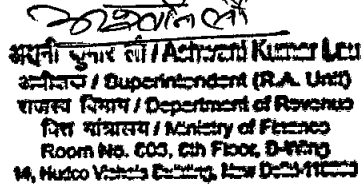 अश्वनी कुमार लौ / Ashwani Kumar Lau
अधीक्षक / Superintendent (R.A. Unit)
राजस्व विभाग / Department of Revenue
वित्त मंत्रालय / Ministry of Finance
Room No. 603, 6th Floor, D-Wing
14, Hudco Vishala Building, New Delhi-110066